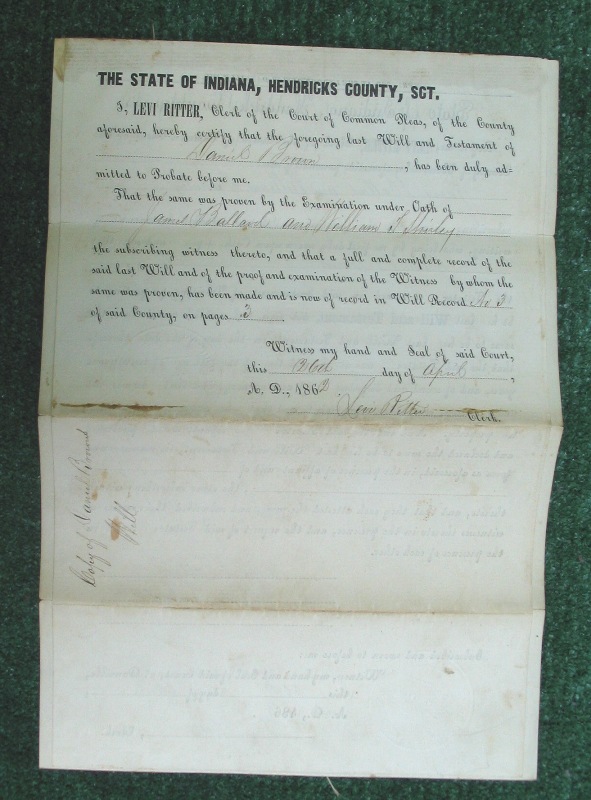 THE STATE OF INDIANA, HENDRICKS COUNTY, SCT.
I, LEVI RITTER, Clerk of the Court of Common Pleas, of the County
aforesaid, hereby certify that the foregoing last Will and Testament of
Daniel Brown, has been duly ad-
mitted to Probate before me.
That the same was proven by the Examination under Oath of
James Ballard and William T Shirley
the subscribing witness thereto, and that a full and complete record of the
said last Will and of the proof and examination of the Witness by whom the
same was proven, has been made and is now of record in Will Record No 3
of said County, on pages 3.
Witness my hand and Seal of said Court,
this day of April,
A. D., 1862
Levi Ritter Clerk.
Copy of Daniel Browns
Will